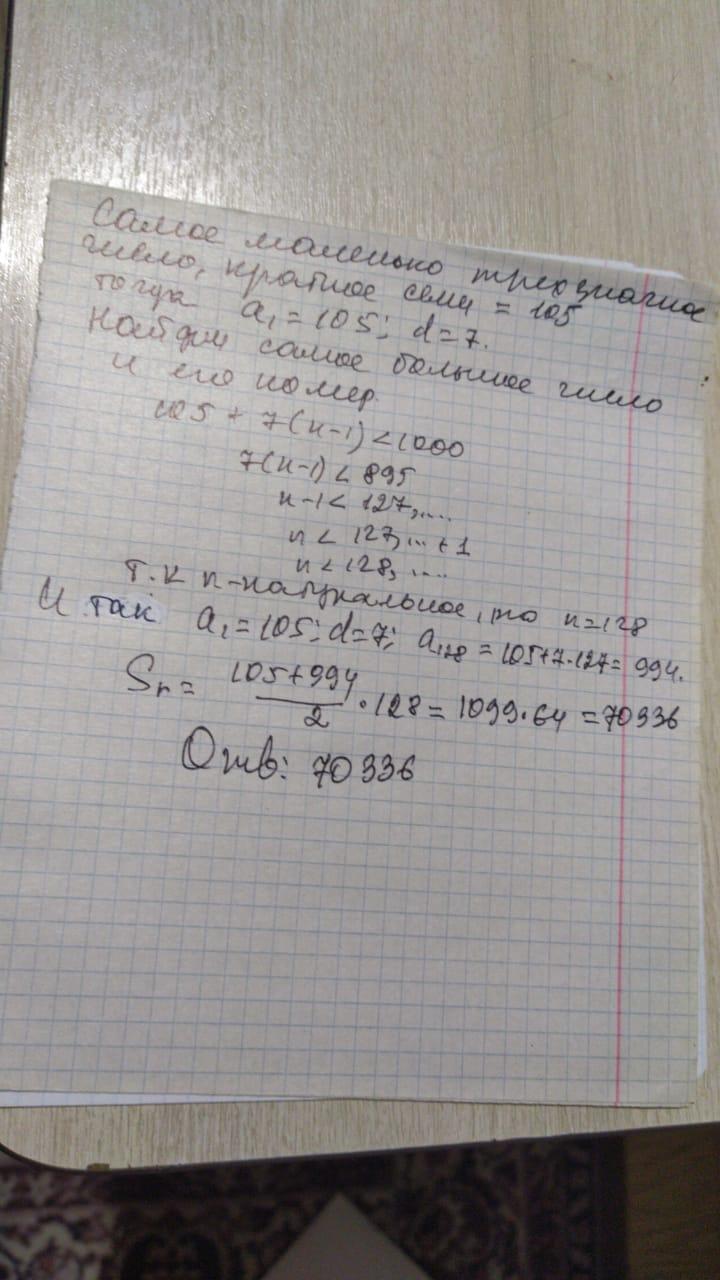 Самое маленько трехзначное
число, кратное семи = 105
тогда a₁ = 105; d = 7.
Найдем самое большое число
и его номер.
105 + 7(n-1) < 1000
7(n-1) < 895
n-1 < 127,....
n < 127,... + 1
n < 128, ....
т.к n-натуральное, то n=128
И так a₁ = 105; d=7; a₁₂₈ = 105+7·127= 994.
Sₙ = (105+994)/2 · 128 = 1099·64 = 70336
Отв: 70336